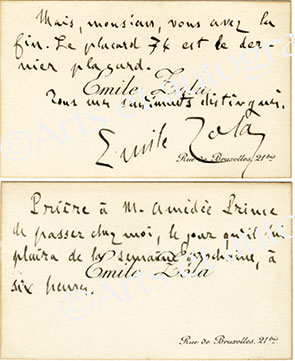 Mais, monsieur, vous avez la
fin. Le placard 74 est le der-
nier placard.
Emile Zola
Tous mes sentiments distingués.
Emile Zola
Rue de Bruxelles, 21bis
Prière à M. Amédée Prime
de passer chez moi, le jour qu'il lui
plaira de la semaine prochaine, à
Emile Zola
six heures.
Rue de Bruxelles, 21bis